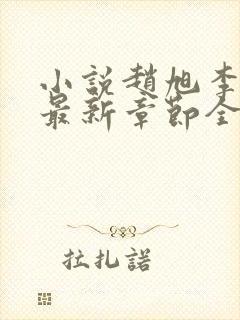 小說趙旭李
最新章節全
拉扎諾